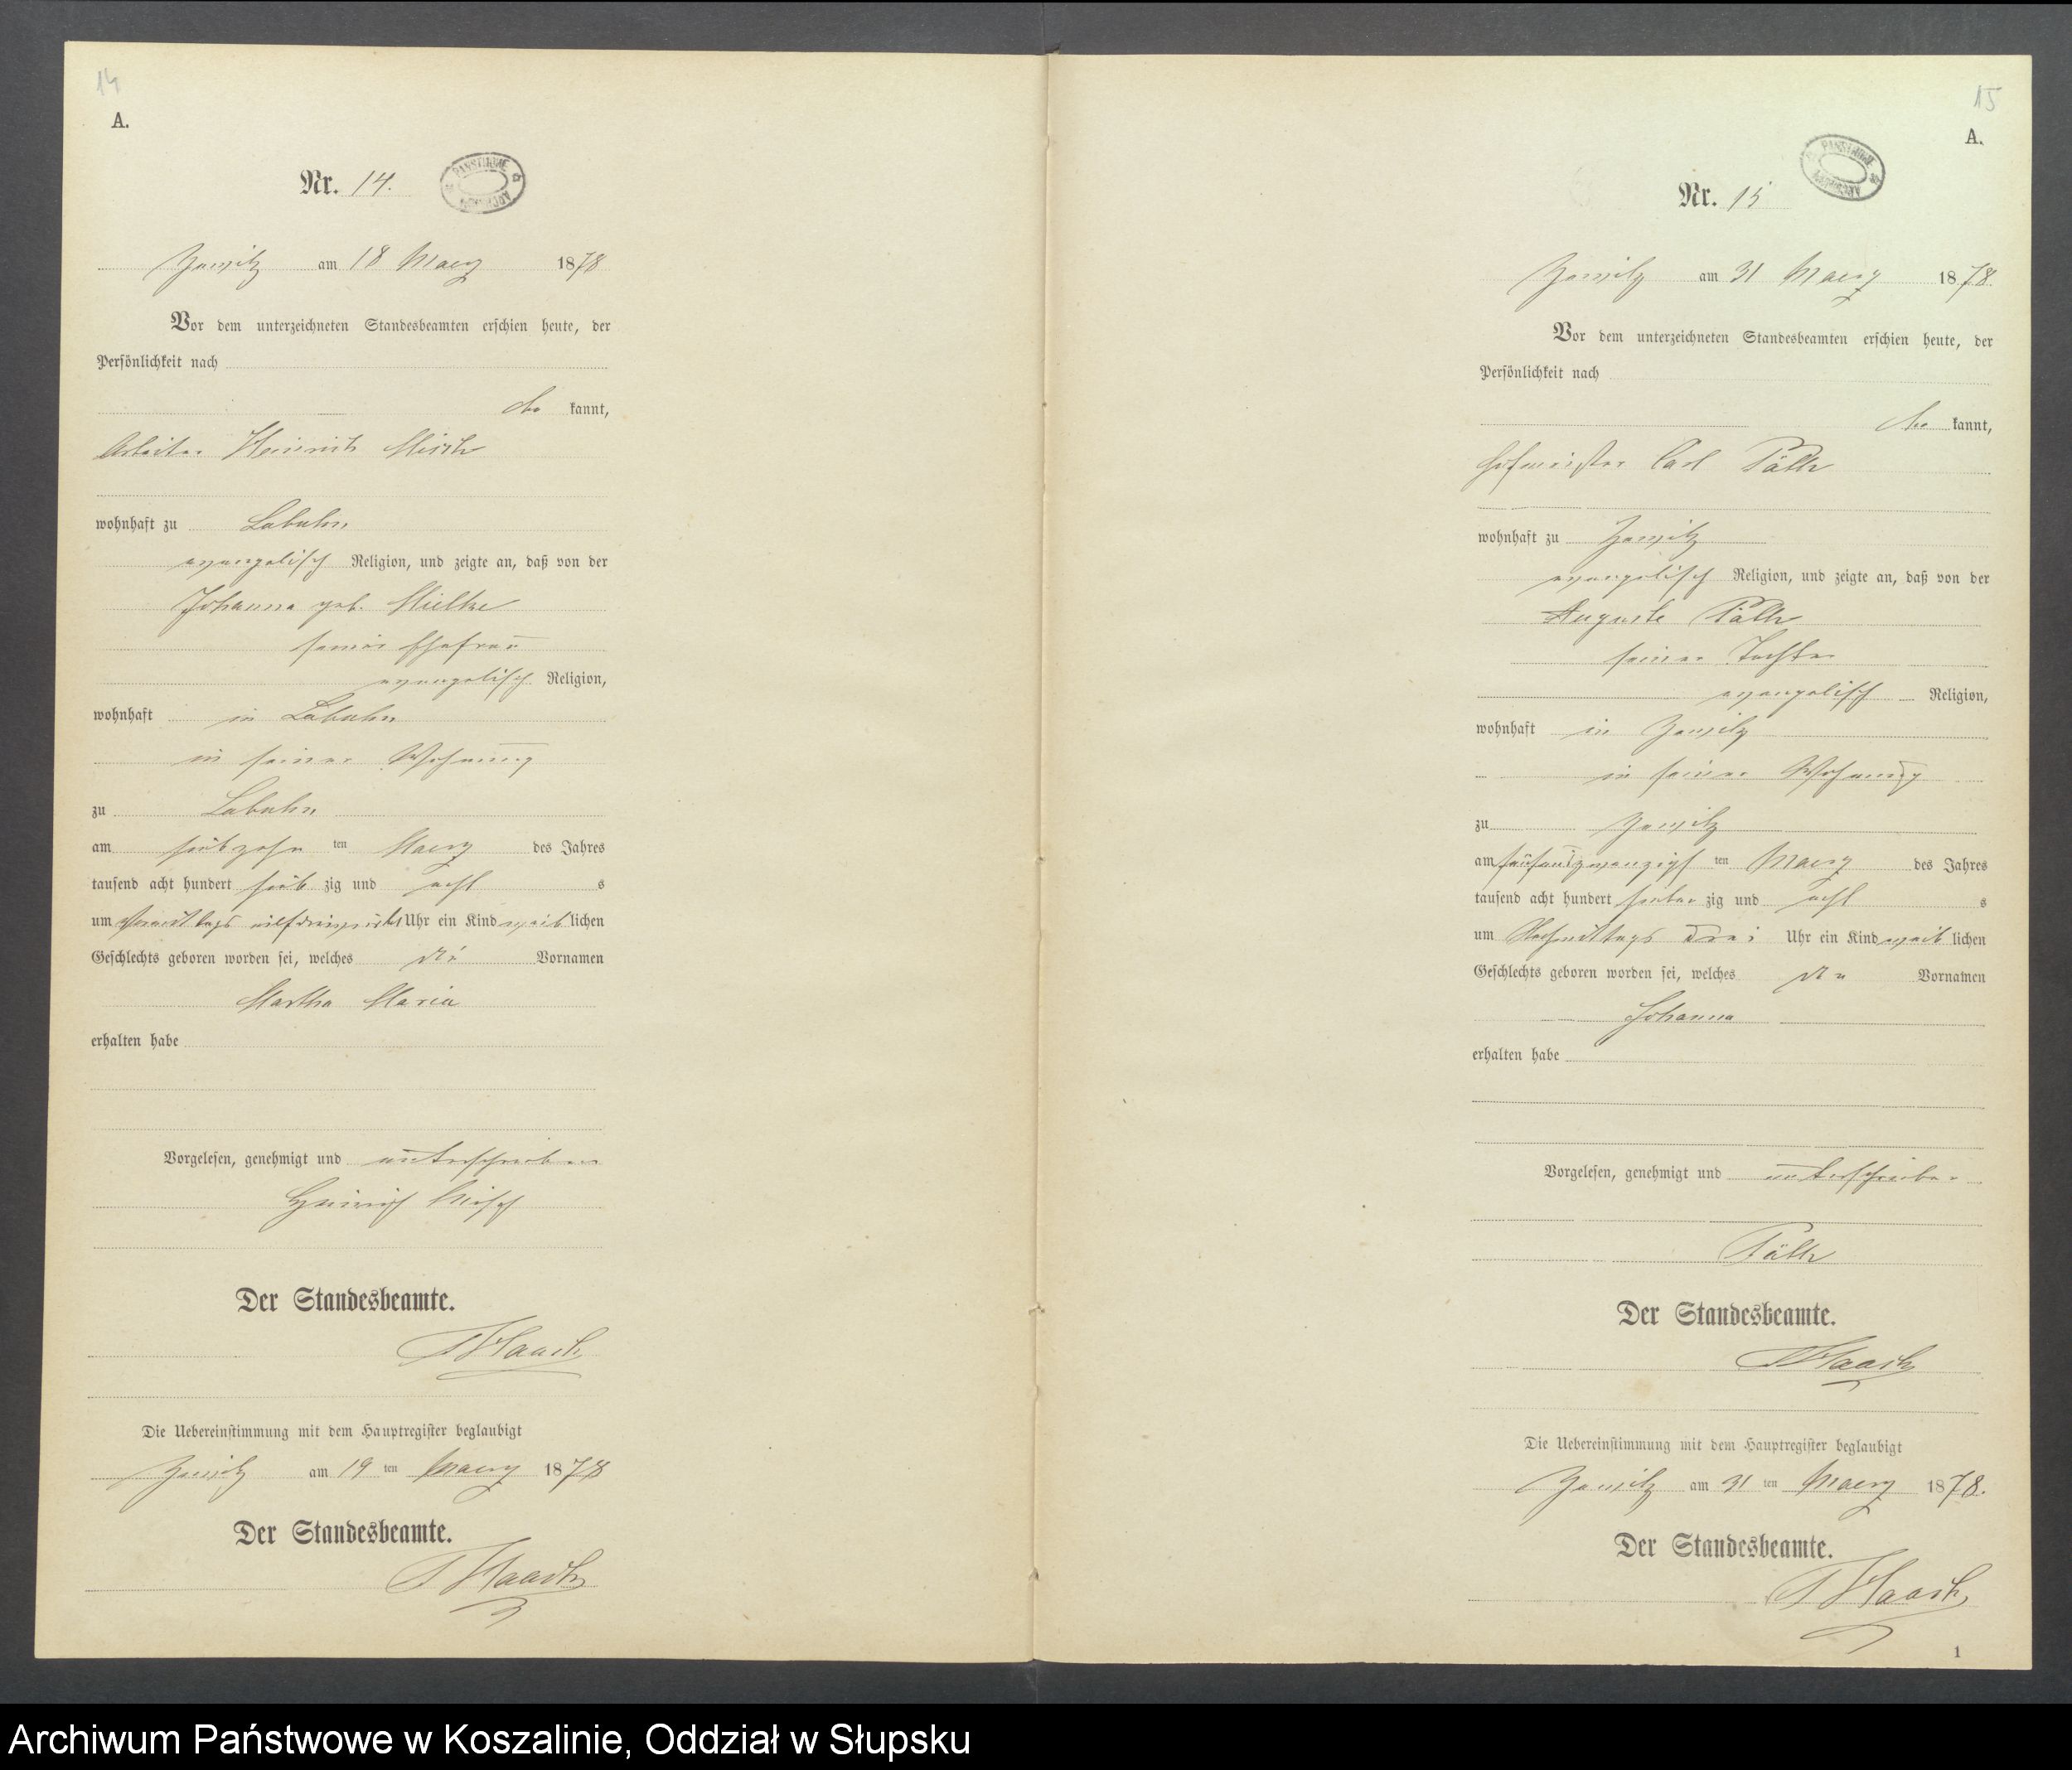 14
A.
Nr. 14.
PAŃSTWOWE ARCHIWUM
Zewitz am 18 Maerz 1878
Vor dem unterzeichneten Standesbeamten erschien heute, der
Persönlichkeit nach
be kannt,
Arbeiter Heinrich
wohnhaft zu Labuhn,
evangelisch Religion, und zeigte an, daß von der
Johanna geb. Mielke
seiner Ehefrau
evangelisch Religion,
wohnhaft in Labuhn
in seiner Wohnung
zu Labuhn
am siebzehn ten Maerz des Jahres
tausend acht hundert sieb zig und acht s
um Vormittags Uhr ein Kind weib lichen
Geschlechts geboren worden sei, welches die Vornamen
Martha Maria
erhalten habe
Vorgelesen, genehmigt und unterschrieben
Heinrich
Der Standesbeamte.
Haack
Die Uebereinstimmung mit dem Hauptregister beglaubigt
Zewitz am 19 ten Maerz 1878
Der Standesbeamte.
Haack
15
A.
Nr. 15
PAŃSTWOWE ARCHIWUM
Zewitz am 31 Maerz 1878.
Vor dem unterzeichneten Standesbeamten erschien heute, der
Persönlichkeit nach
be kannt,
Hofmeister Carl
wohnhaft zu Zewitz
evangelisch Religion, und zeigte an, daß von der
Auguste
seiner Tochter
evangelisch Religion,
wohnhaft in Zewitz
in seiner Wohnung
zu Zewitz
am fünfundzwanzigs ten Maerz des Jahres
tausend acht hundert sieben zig und acht s
um Nachmittags drei Uhr ein Kind weib lichen
Geschlechts geboren worden sei, welches den Vornamen
Johanna
erhalten habe
Vorgelesen, genehmigt und unterschrieben
Der Standesbeamte.
Haack
Die Uebereinstimmung mit dem Hauptregister beglaubigt
Zewitz am 31 ten Maerz 1878.
Der Standesbeamte.
Haack
1
Archiwum Państwowe w Koszalinie, Oddział w Słupsku